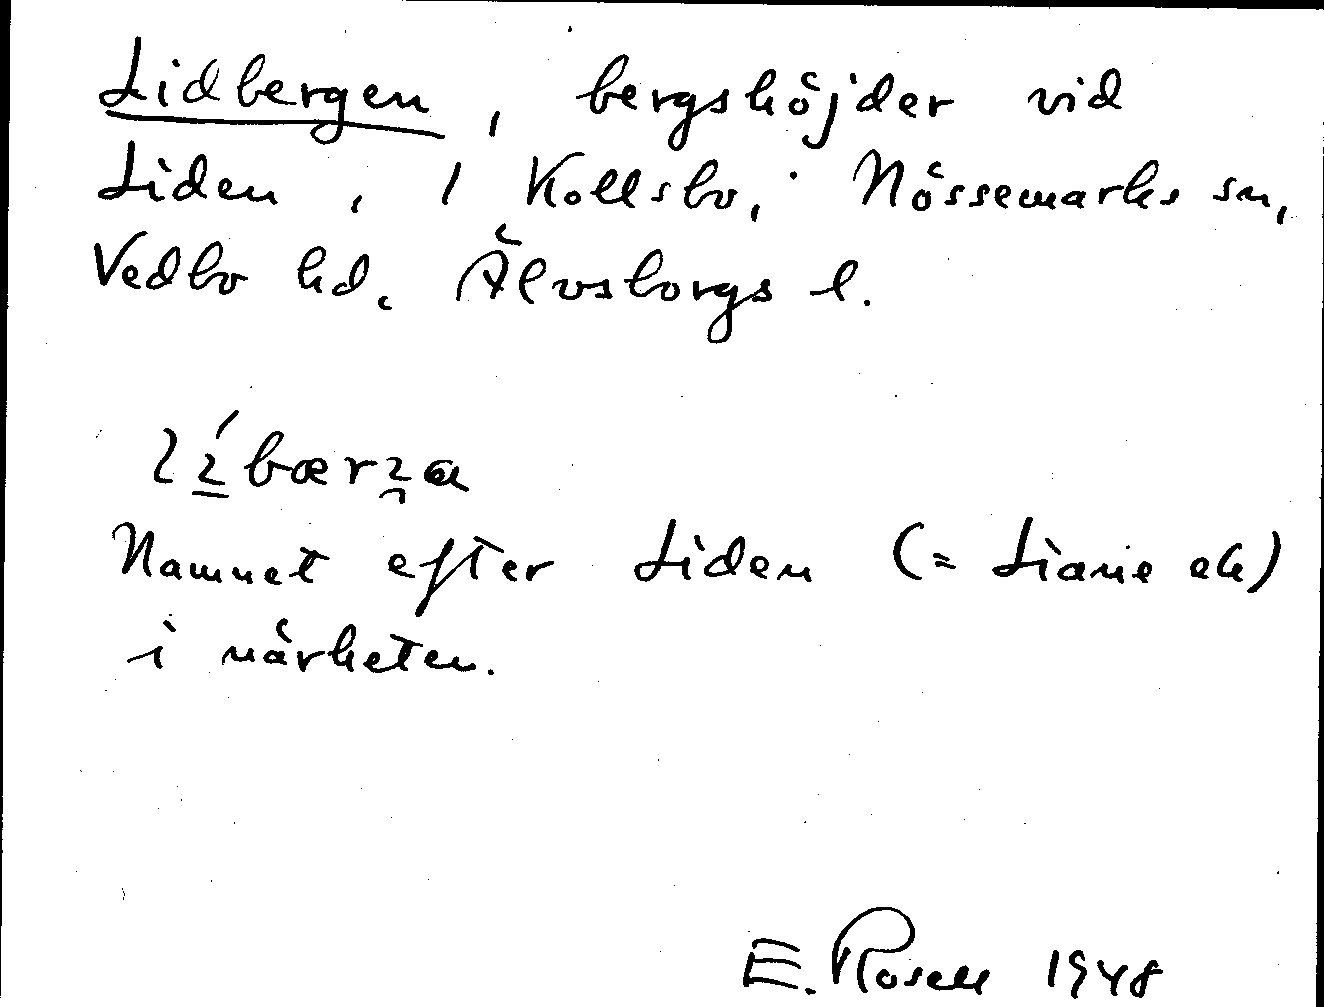 Lidbergen, bergshöjder vid
Liden, 1 Kollsbo, Nössemarks sn,
Vedbo hd. Älvsborgs l.
Namnet efter Liden (= Liane
i närheten.
E. Rosell 1948